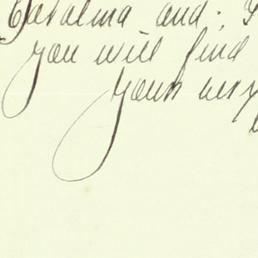 Catalina and. I
you will find
yours very